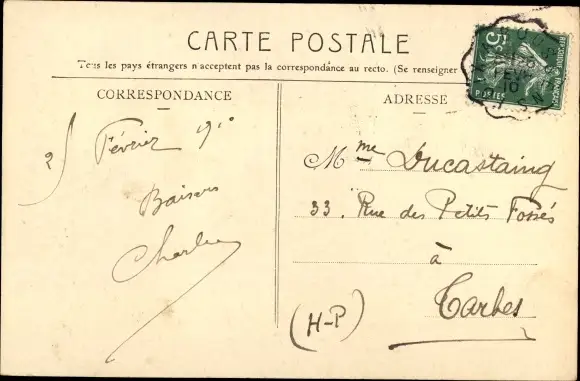 CARTE POSTALE
Tous les pays étrangers n'acceptent pas la correspondance au recto. (Se renseigner
CORRESPONDANCE
Février 1910
Baisers
Charles
ADRESSE
Mme Ducastaing
33, Rue des Petits Fossés
à
Tarbes
(H-P)
5c
POSTES